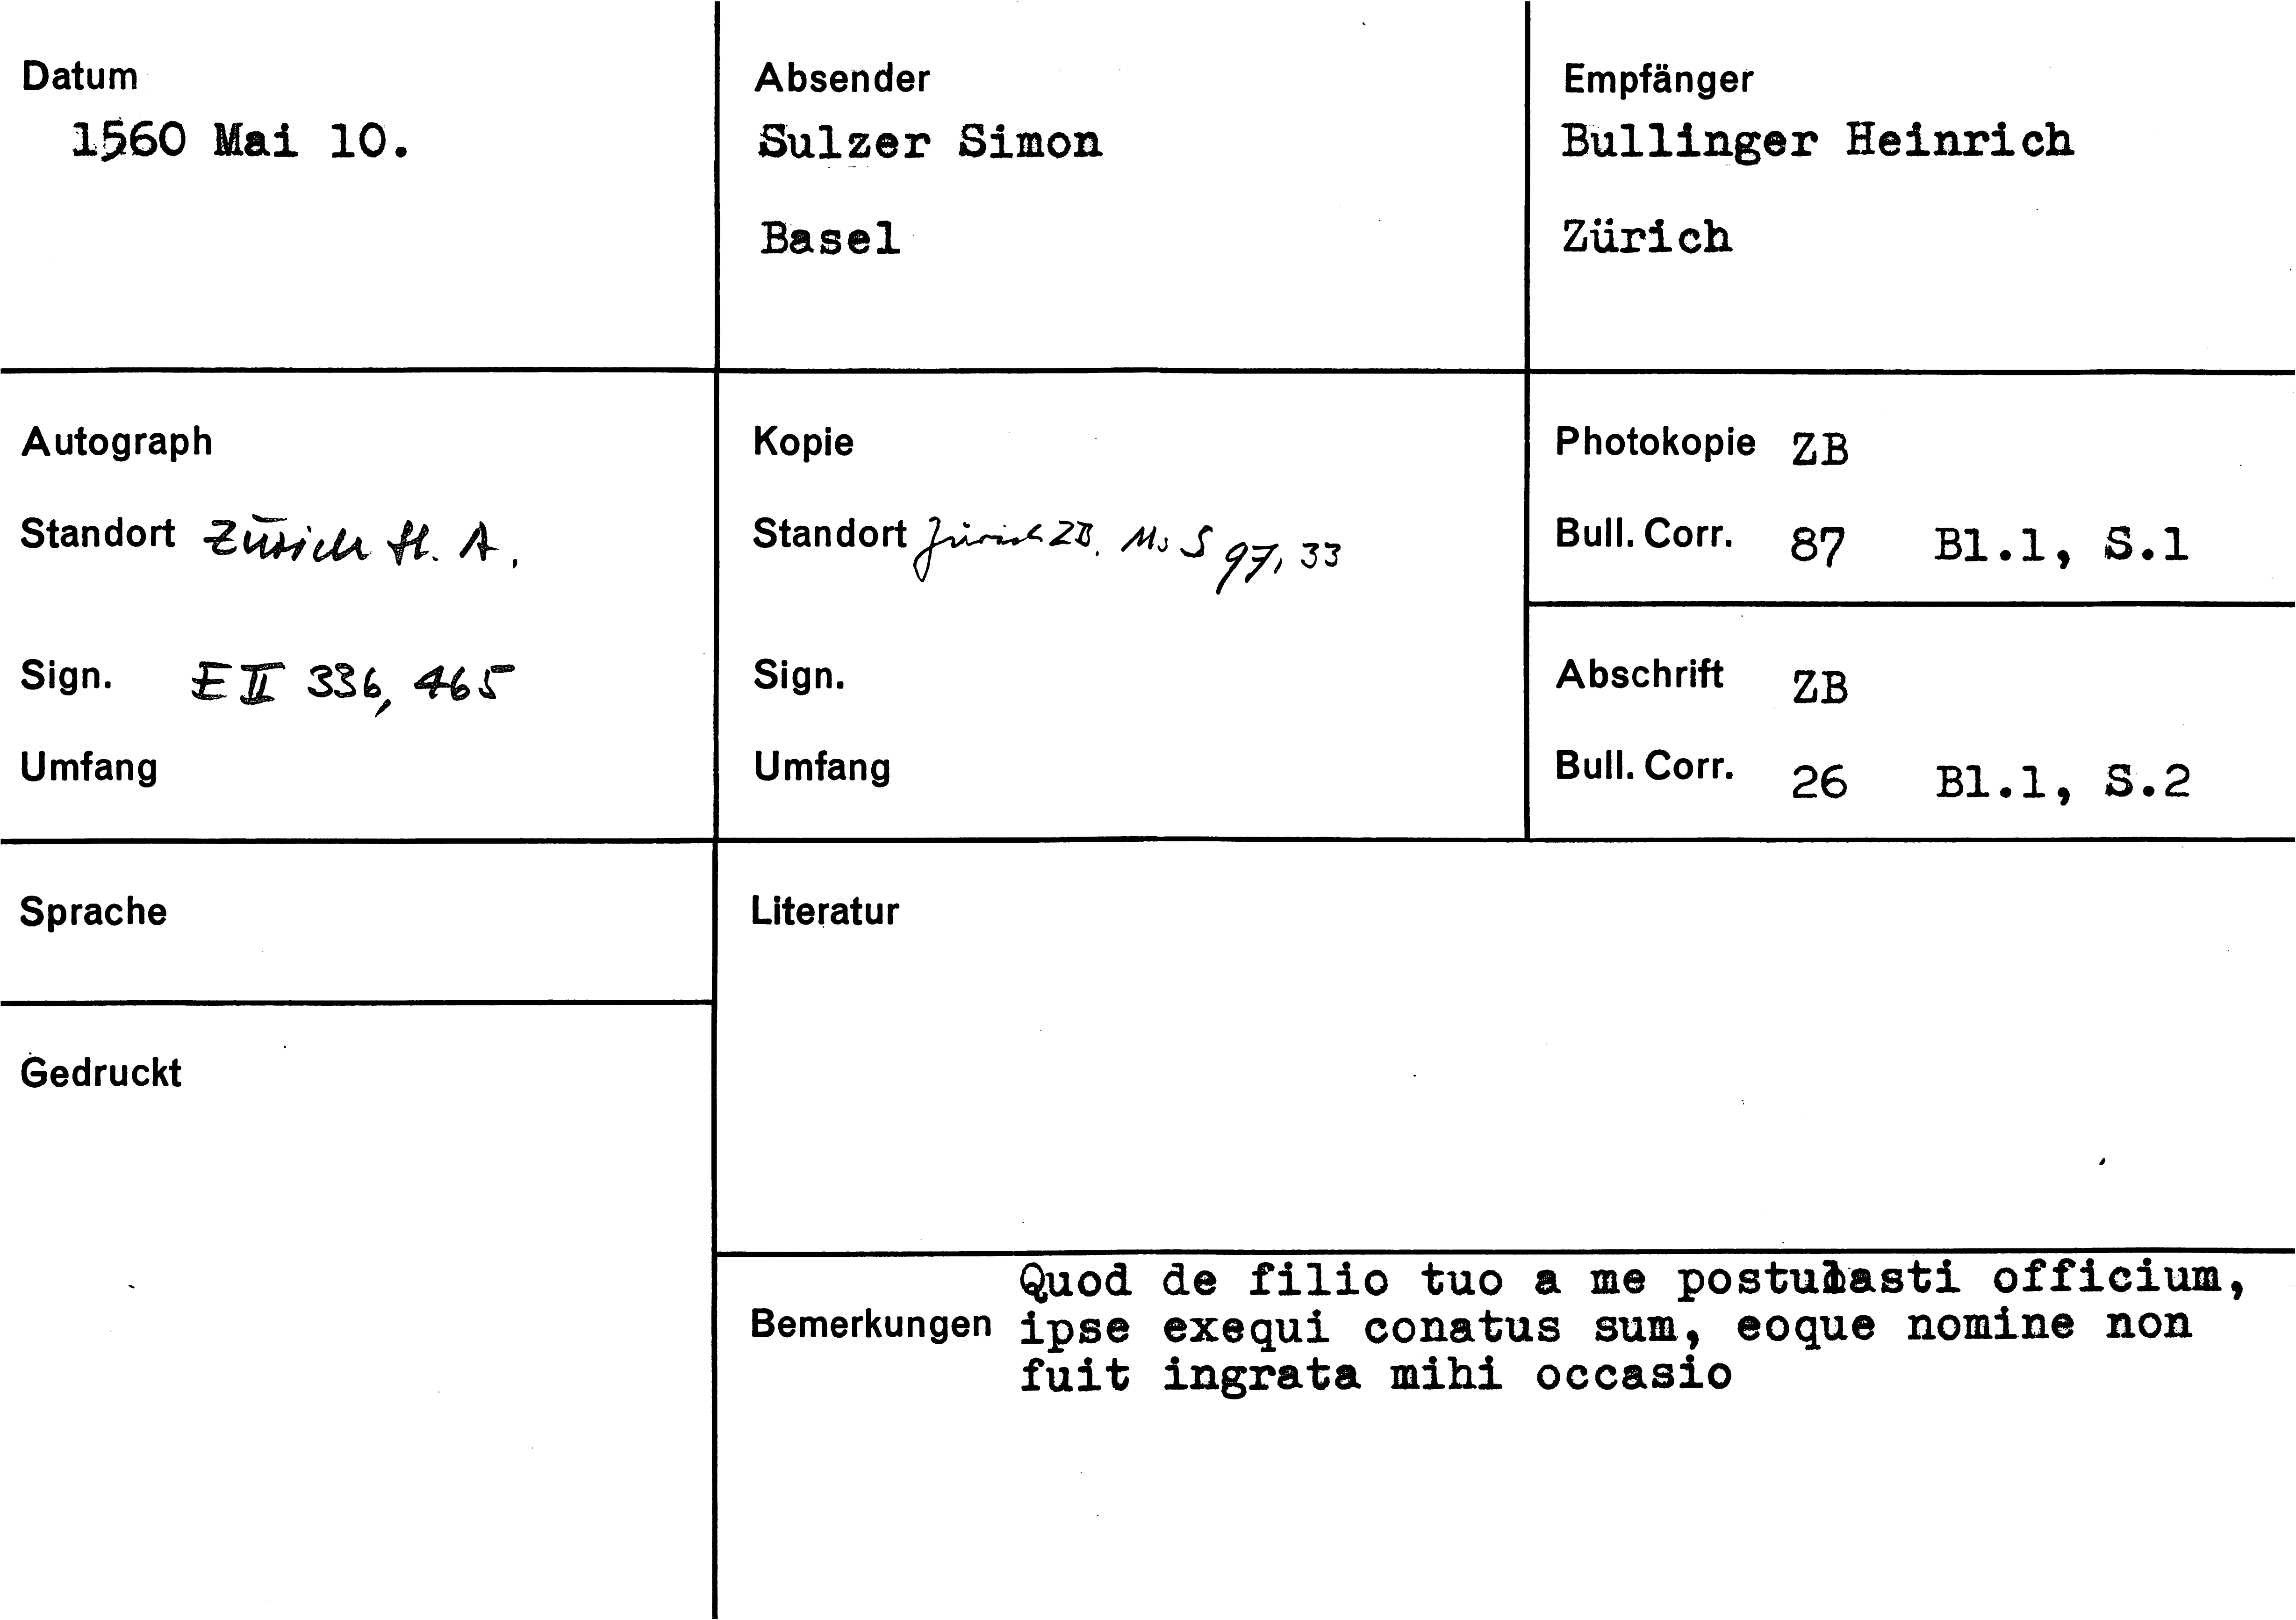 Datum
1560 Mai 10.
Absender
Sulzer Simon
Basel
Empfänger
Bullinger Heinrich
Zürich
Autograph
Standort Zürich St. A.
Sign. E II 336, 465
Umfang
Kopie
Standort Zürich ZB. Ms S 97, 33
Sign.
Umfang
Photokopie ZB
Bull. Corr. 87 Bl.1, S.1
Abschrift ZB
Bull. Corr. 26 Bl.1, S.2
Sprache
Literatur
Gedruckt
Bemerkungen
Quod de filio tuo a me postulasti officium,
ipse exequi conatus sum, eoque nomine non
fuit ingrata mihi occasio